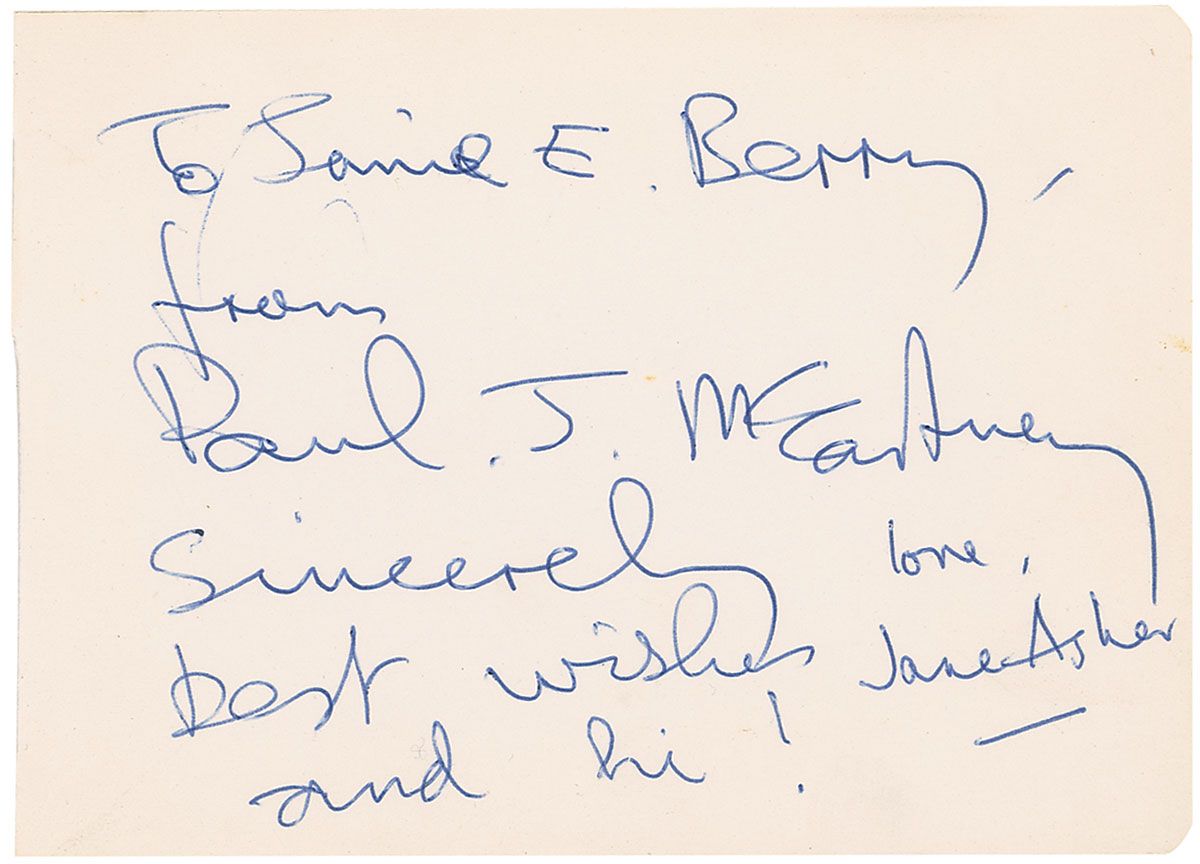 To Janie E. Berry,
from
Paul. J. McCartney
Sincerely
best wishes
and hi!
love,
Jane Asher